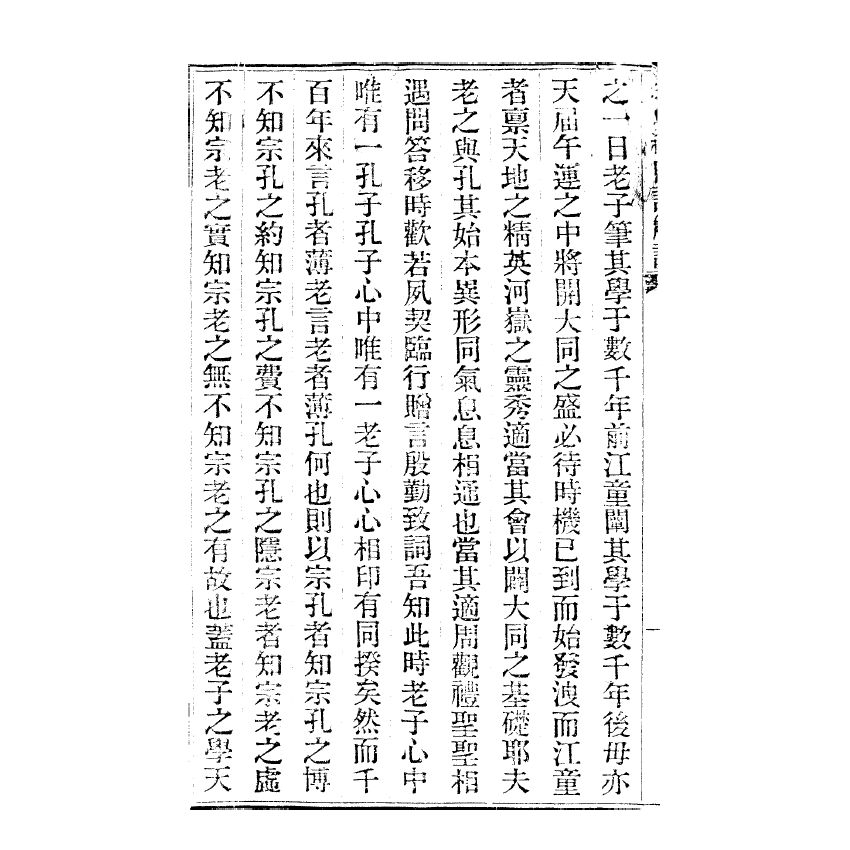 之一日老子筆其學于數千年前江童闡其學于數千年後毋亦
天屆午運之中將開大同之盛必待時機已到而始發洩而江童
者禀天地之精英河嶽之靈秀適當其會以闢大同之基礎耶夫
老之與孔其始本異形同氣息息相通也當其適周觀禮聖聖相
遇問答移時歡若夙契臨行贈言殷勤致詞吾知此時老子心中
唯有一孔子孔子心中唯有一老子心心相印有同揆矣然而千
百年來言孔者薄老言老者薄孔何也則以宗孔者知宗孔之博
不知宗孔之約知宗孔之費不知宗孔之隱宗老者知宗老之虛
不知宗老之實知宗老之無不知宗老之有故也蓋老子之學天